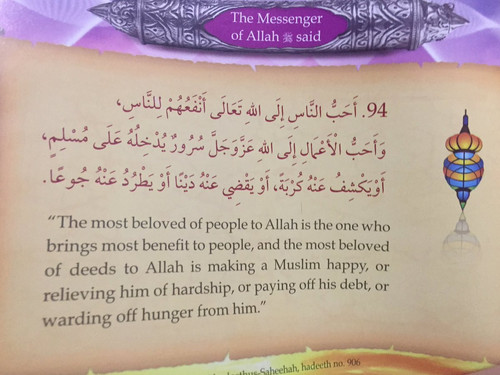 The Messenger
of Allah ﷺ said
94. أَحَبُّ النَّاسِ إِلَى اللهِ تَعَالَى أَنْفَعُهُمْ لِلنَّاسِ،
وَأَحَبُّ الْأَعْمَالِ إِلَى اللهِ عَزَّوَجَلَّ سُرُورٌ يُدْخِلُهُ عَلَى مُسْلِمٍ،
أَوْ يَكْشِفُ عَنْهُ كُرْبَةً، أَوْ يَقْضِي عَنْهُ دَيْنًا أَوْ يَطْرُدُ عَنْهُ جُوعًا.
“The most beloved of people to Allah is the one who
brings most benefit to people, and the most beloved
of deeds to Allah is making a Muslim happy, or
relieving him of hardship, or paying off his debt, or
warding off hunger from him.”
Saheehah, hadeeth no. 906